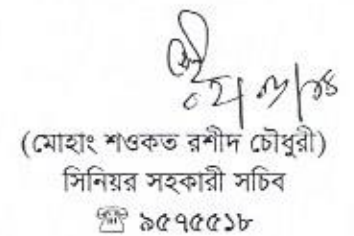 (মোহাং শওকত রশীদ চৌধুরী)
সিনিয়র সহকারী সচিব
☏ ৯৫৭৫৫১৮